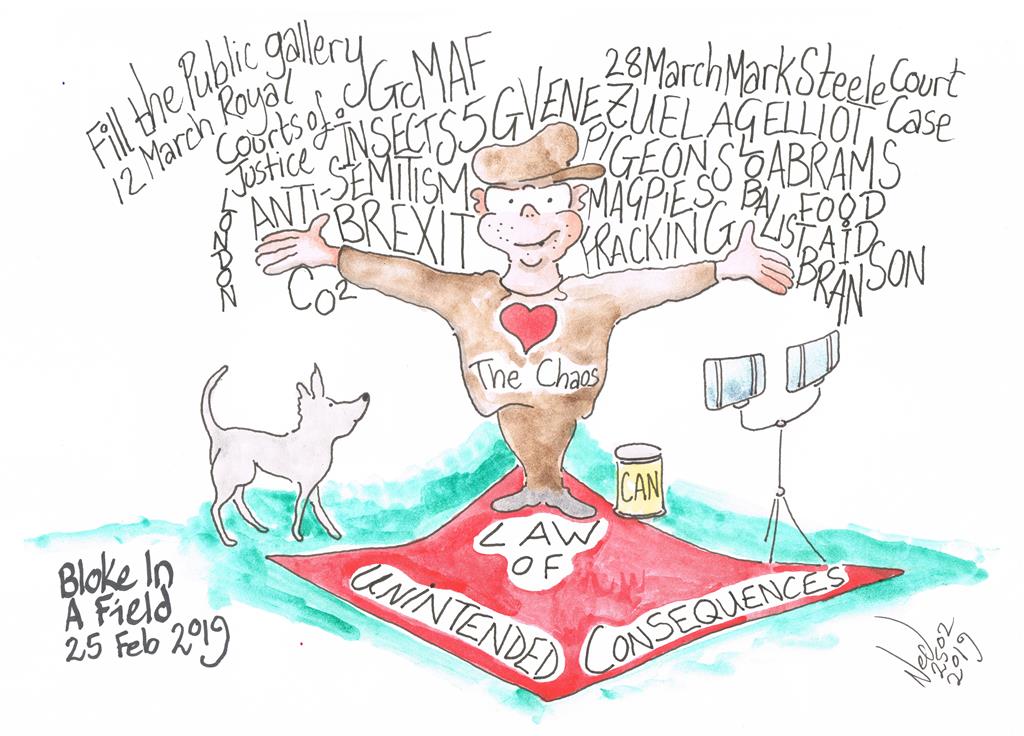 Fill the Public gallery
12 March Royal
Courts of
Justice
LONDON
GcMAF
INSECTS 5G VENEZUELA G ELLIOT
28 March Mark Steele Court
Case
ANTI-SEMITISM
PIGEONS
GLOBALIST
ABRAMS
BREXIT
MAGPIES
FOOD
FRACKING
TAID
BRANSON
CO2
The Chaos
CAN
LAW
OF
UNINTENDED CONSEQUENCES
Bloke In
A Field
25 Feb 2019
Ned
2502
2019